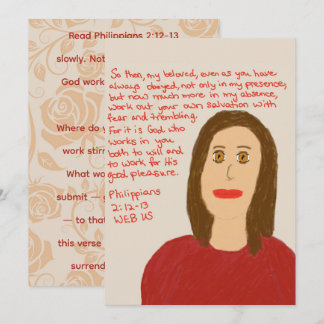 So then, my beloved, even as you have
always obeyed, not only in my presence,
but now much more in my absence,
work out your own salvation with
fear and trembling.
For it is God who
works in you
both to will and
to work for His
good pleasure.
Philippians
2:12-13
WEB US
Read Philippians 2:12–13
slowly. Not
God work
Where do y
work stirr
What wo
submit —
— to that
this verse
surrend